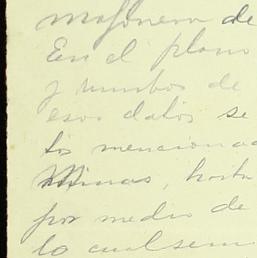 mojonera de
En el plano
y rumbos de
esos datos se
los menciona
Minas, hasta
por medio de
lo cual sem